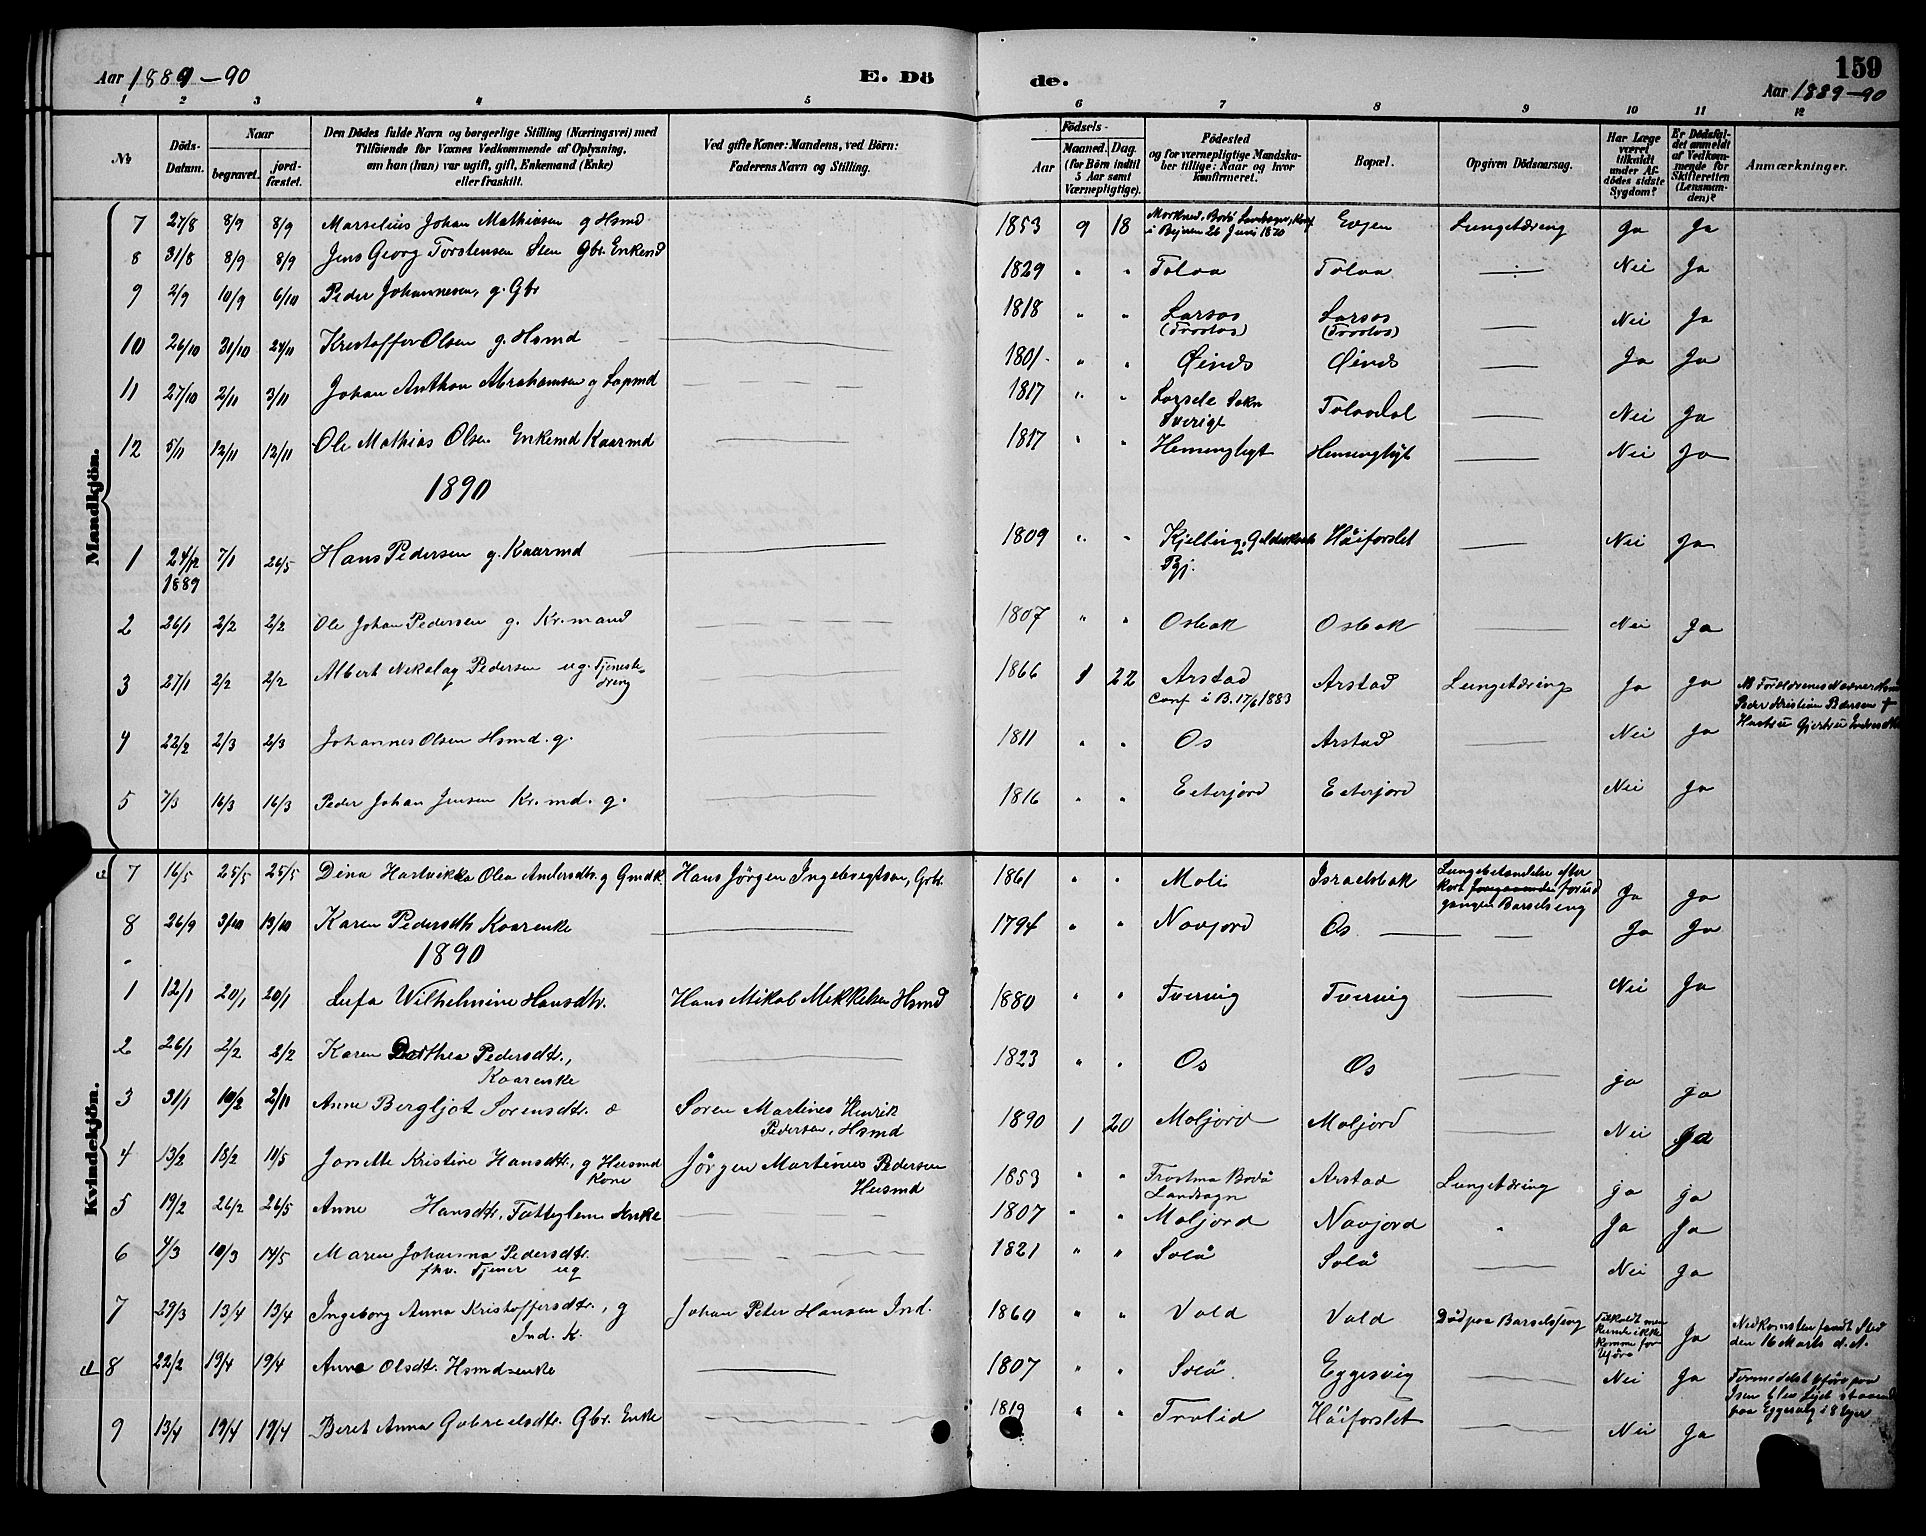 Aar 1889-90 E. Dö de. 159
Aar 1889-90
1 2 3 4 5 6 7 8 9 10 11 12
No
Döds-Datum.
Naar
begravet.
jordfæstet.
Den Dödes fulde Navn og borgerlige Stilling (Næringsvei) med
Tilföiende for Voxnes Vedkommende af Oplysning,
om han (hun) var ugift, gift, Enkemand (Enke)
eller fraskilt.
Ved gifte Koner: Mandens, ved Börn:
Faderens Navn og Stilling.
Födsels-
Aar
Maaned. Dag.
(for Börn indtil
5 Aar samt
Værnepligtige).
Födested
og for værnepligtige Mandskaber tillige: Naar og hvor
konfirmeret.
Bopæl.
Opgiven Dödsaarsag.
Har Læge
været
tilkaldt
under Afdödes sidste
Sygdom?
Er Dödsfaldet anmeldt
af Vedkommende for
Skifteretten
(Lensmanden)?
Anmærkninger.
Mandkjön.
7 27/8 8/9 8/9 Marselius Johan Mathiasen g Hsmd 1853 9 18 Morkned, Bodö Landsogn, Konf i Bejeren 26 Juni 1870 Evjen Lungetæring Ja Ja
8 31/8 8/9 8/9 Jens Georg Torstensen Sten Gbr. Enkemd 1829 " " Tolaa Tolaa Nei Ja
9 2/9 10/9 6/10 Peder Johannesen, g. Gbr 1818 " " Larsos (Trostos) Larsos (Trostos) Nei Ja
10 26/10 31/10 24/11 Kristoffer Olsen g. Hsmd 1801 " " Øinds Øinds Ja Ja
11 27/10 2/11 3/11 Johan Anthon Abrahamsen g Lapmd 1817 " " Sorsele Sokn Sverige Tolaadal Nei Ja
12 5/11 12/11 12/11 Ole Mathias Olsen Enkemd Kaarmd 1817 " " Hemenglygt Hemenglygt Nei Ja
1890
1 24/12 1889 7/1 26/5 Hans Pedersen g. Kaarmd 1809 " " Kjelling, Gildeskaal Pgj. Høiforslet Nei Ja
2 26/1 2/2 2/2 Ole Johan Pedersen g. Kr.mand 1807 " " Osbak Osbak Nei Ja
3 27/1 2/2 2/2 Albert Nikolay Pedersen ug. Tjenestedreng 1866 1 22 Arstad Conf i B. 17/6 1883 Arstad Lungetæring Ja Ja Forældrenes Navne Hsmd Peder Kristian Pedersen + Hustru Gjertru
4 22/2 2/3 2/3 Johannes Olsen Hsmd. g. 1811 " " Os Arstad Nei Ja
5 7/3 16/3 16/3 Peder Johan Jensen Kr.md. g. 1816 " " Eeterjord Eeterjord Nei Ja
Kvindekjön.
7 16/5 25/5 25/5 Dina Hartvikka Olea Andersdtr. g Gmdk. Hans Jörgen Ingebrigtsen, Grbr. 1861 " " Moli Israelsbak Lungebetændelse efter kort forudgangen Barselseng Ja Ja
8 26/9 3/10 13/10 Karen Pedersdtr Kaarenke 1794 " " Navjord Os Ja Ja
1890
1 12/1 20/1 20/1 Lufa Wilhelmine Hansdtr. Hans Mikal Mikkelsen Hsmd 1880 " " Tvervig Tvervig Nei Ja
2 26/1 2/2 2/2 Karen Dorthea Pedersdtr., Kaarenke 1823 " " Os Os ja ja
3 31/1 10/2 2/11 Anne Bergljot Sorensdtr. Soren Martines Henrik Pedersen, Hsmd 1890 1 20 Moljord Moljord Nei Ja
4 13/2 18/2 10/5 Jorsette Kristine Hansdtr., g Husmd Kone Jørgen Martines Pedersen Husmd 1853 " " Bodö Landsogn Arstad Lungetæring ja ja
5 19/2 26/2 26/5 Anne Hansdtr. Fattiglem Enke 1807 " " Moljord Navjord " Ja Ja
6 4/3 10/3 14/5 Maren Johanna Pedersdtr. fhv. Tjener ug 1821 " " Solö Solö Nei Ja
7 29/3 13/4 13/4 Ingeborg Anna Kristoffersdtr., g Ind. K. Johan Peter Hansen Ind. 1860 " " Vold Vold Död paa Barselseng Tilkaldt men kunde ikke komme for Uføre Ja Nedkomsten fandt Sted den 16 Marts d. A.
8 22/2 19/4 19/4 Anne Olsdtr. Hsmdsenke 1807 " " Solö Eggesvig Nei Ja Formedelst Uføre paa Isen blev Liget staaende paa Eggesvig i 8 Uger
9 13/4 19/4 19/4 Beret Anna Gabrielsdtr. Gbr. Enke 1819 " " Trolid Høiforslet Nei Ja